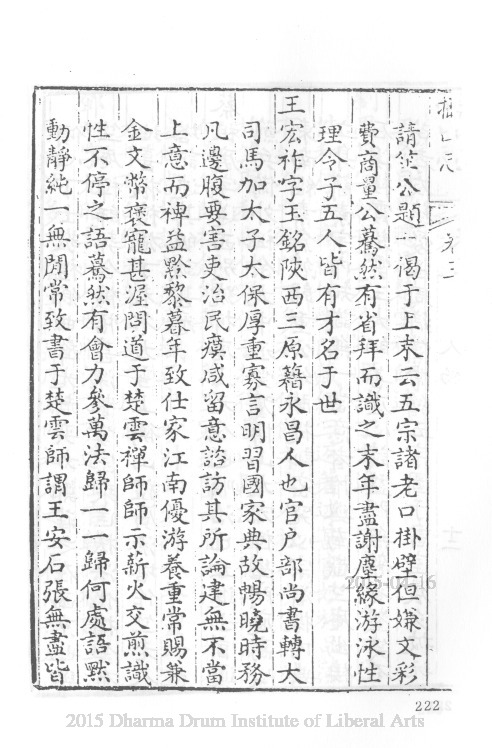 請筮公題一偈于上末云五宗諸老口掛壁但嫌文彩
費商量公驀然有省拜而識之末年盡謝塵緣游泳性
理令子五人皆有才名于世
王宏祚字玉銘陝西三原籍永昌人也官户部尚書轉大
司馬加太子太保厚重寡言明習國家典故暢曉時務
凡邊腹要害吏治民瘼咸留意諮訪其所論建無不當
上意而裨益黔黎暮年致仕家江南優游養重常賜兼
金文幣褒寵甚渥問道于楚雲禪師師示薪火交煎識
性不停之語驀然有會力參萬法歸一一歸何處語默
動靜純一無閒常致書于楚雲師謂王安石張無盡皆
卷三
2015-04-16
222
2015 Dharma Drum Institute of Liberal Arts